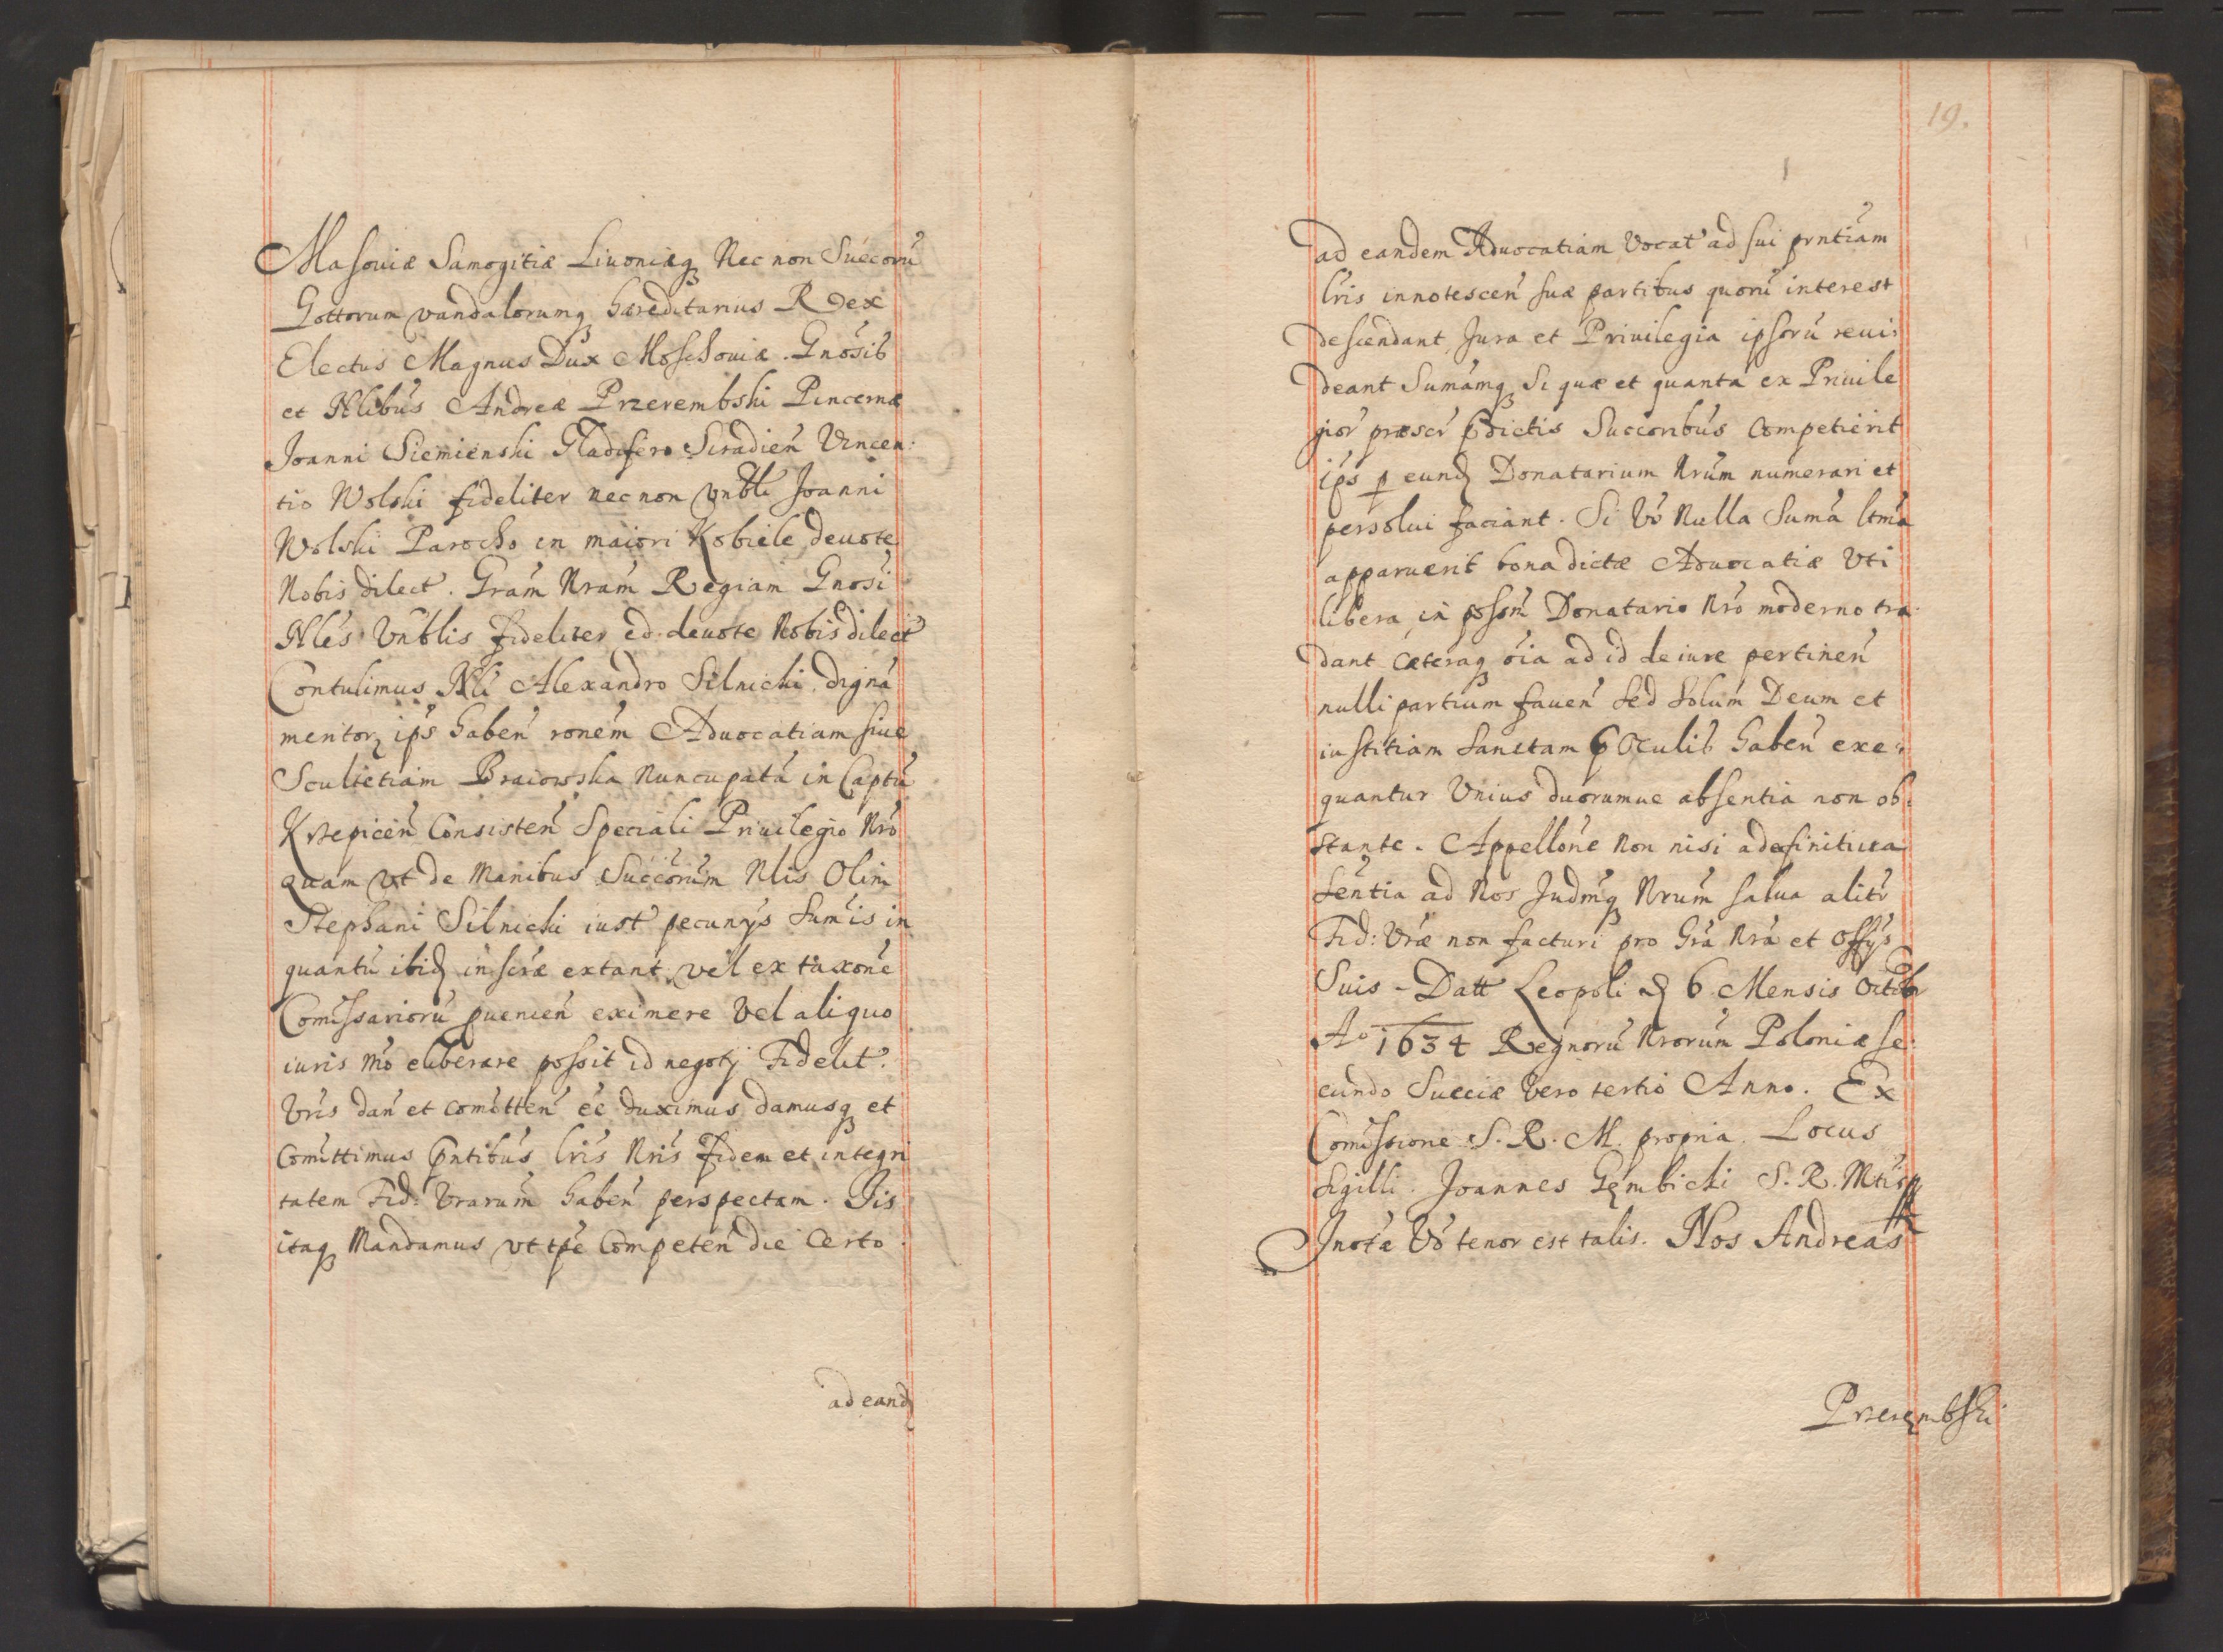 Masoviæ Samogitiæ Liuoniæq Nec non Suecorũ
Gottorum vandalorumq hæreditarius Rex
Electus Magnus Dux Moschouiæ. Gnosib
et Nlibus Andreæ Przerembski Pincernæ
Joanni Siemienski Gladifero Siradien̄ Vincen:
tio Wolski fideliter nec non vnbli Joanni
Wolski Parocho in maiori Kobiele deuote
Nobis dilect. Gram Nram Regiam Gnosi
Nles Vnblis fideliter ed deuote Nobis dilect
Contulimus Nli Alexandro Silnicki digna
meritorȩ ips haben̄ ronem Aduocatiam siue
Scultetiam Braiowska Nuncupatã in Captũ
Krzepicen̄ Consisten̄ Speciali Priuilegio Nro
quam vt de Manibus Succorum Nlis Olim
Stephani Silnicki iust pecunÿs Sumis in
quantũ ibid inscræ extant vel ex taxone
Comissariorũ puenien̄ eximere Vel aliquo
iuris mo eliberare possit id negotÿ Fidelit:
Vris dan̄ et comitten̄ ee duximus damusq et
Comittimus pntibus lris Nris fidem et integri
tatem Fid: Vrarum haben̄ perspectam. Iis
itaq Mandamus vt tpe Competen̄ die Certo
ad eand
19.
ad eandem Aduocatiam Vocat ad sui prntiam
lris innotescen̄ suæ partibus quorũ interest
descendant Jura et Priuilegia ipsorũ reui:
deant Sumamq Si quæ et quanta ex Priuile
gior præscr pdictis Succoribus Competierit
ips p eund Donatarium Nrum numerari et
persolui faciant. Si Vo Nulla Suma ltma
apparuerit bona dictæ Aduocatiæ Vti
libera in posonē Donatario Nro moderno tra:
dant Cæteraq oia ad id de iure pertinen̄
nulli partium fauen̄ Sed Solum Deum et
iustitiam Sanctam p Oculis haben̄ exe:
quantur Vnius duorumue absentia non ob:
stante. Appellone Non nisi a definitiua
Sentia ad Nos Judmq Nrum salua alitr
Fid: Vræ non facturi pro Gra Nra et Offÿs
Suis. Datt Leopoli d 6 Mensis Octobr
Ao 1634 Regnorũ Nrorum Poloniæ se:
cundo Sueciæ Vero tertio Anno. Ex
Comissione S. R. M. propria. Locus
Sigilli. Joannes Gęmbicki S. R. Mtis
Inotæ Vo tenor est talis. Nos Andreas
Przeręmbski